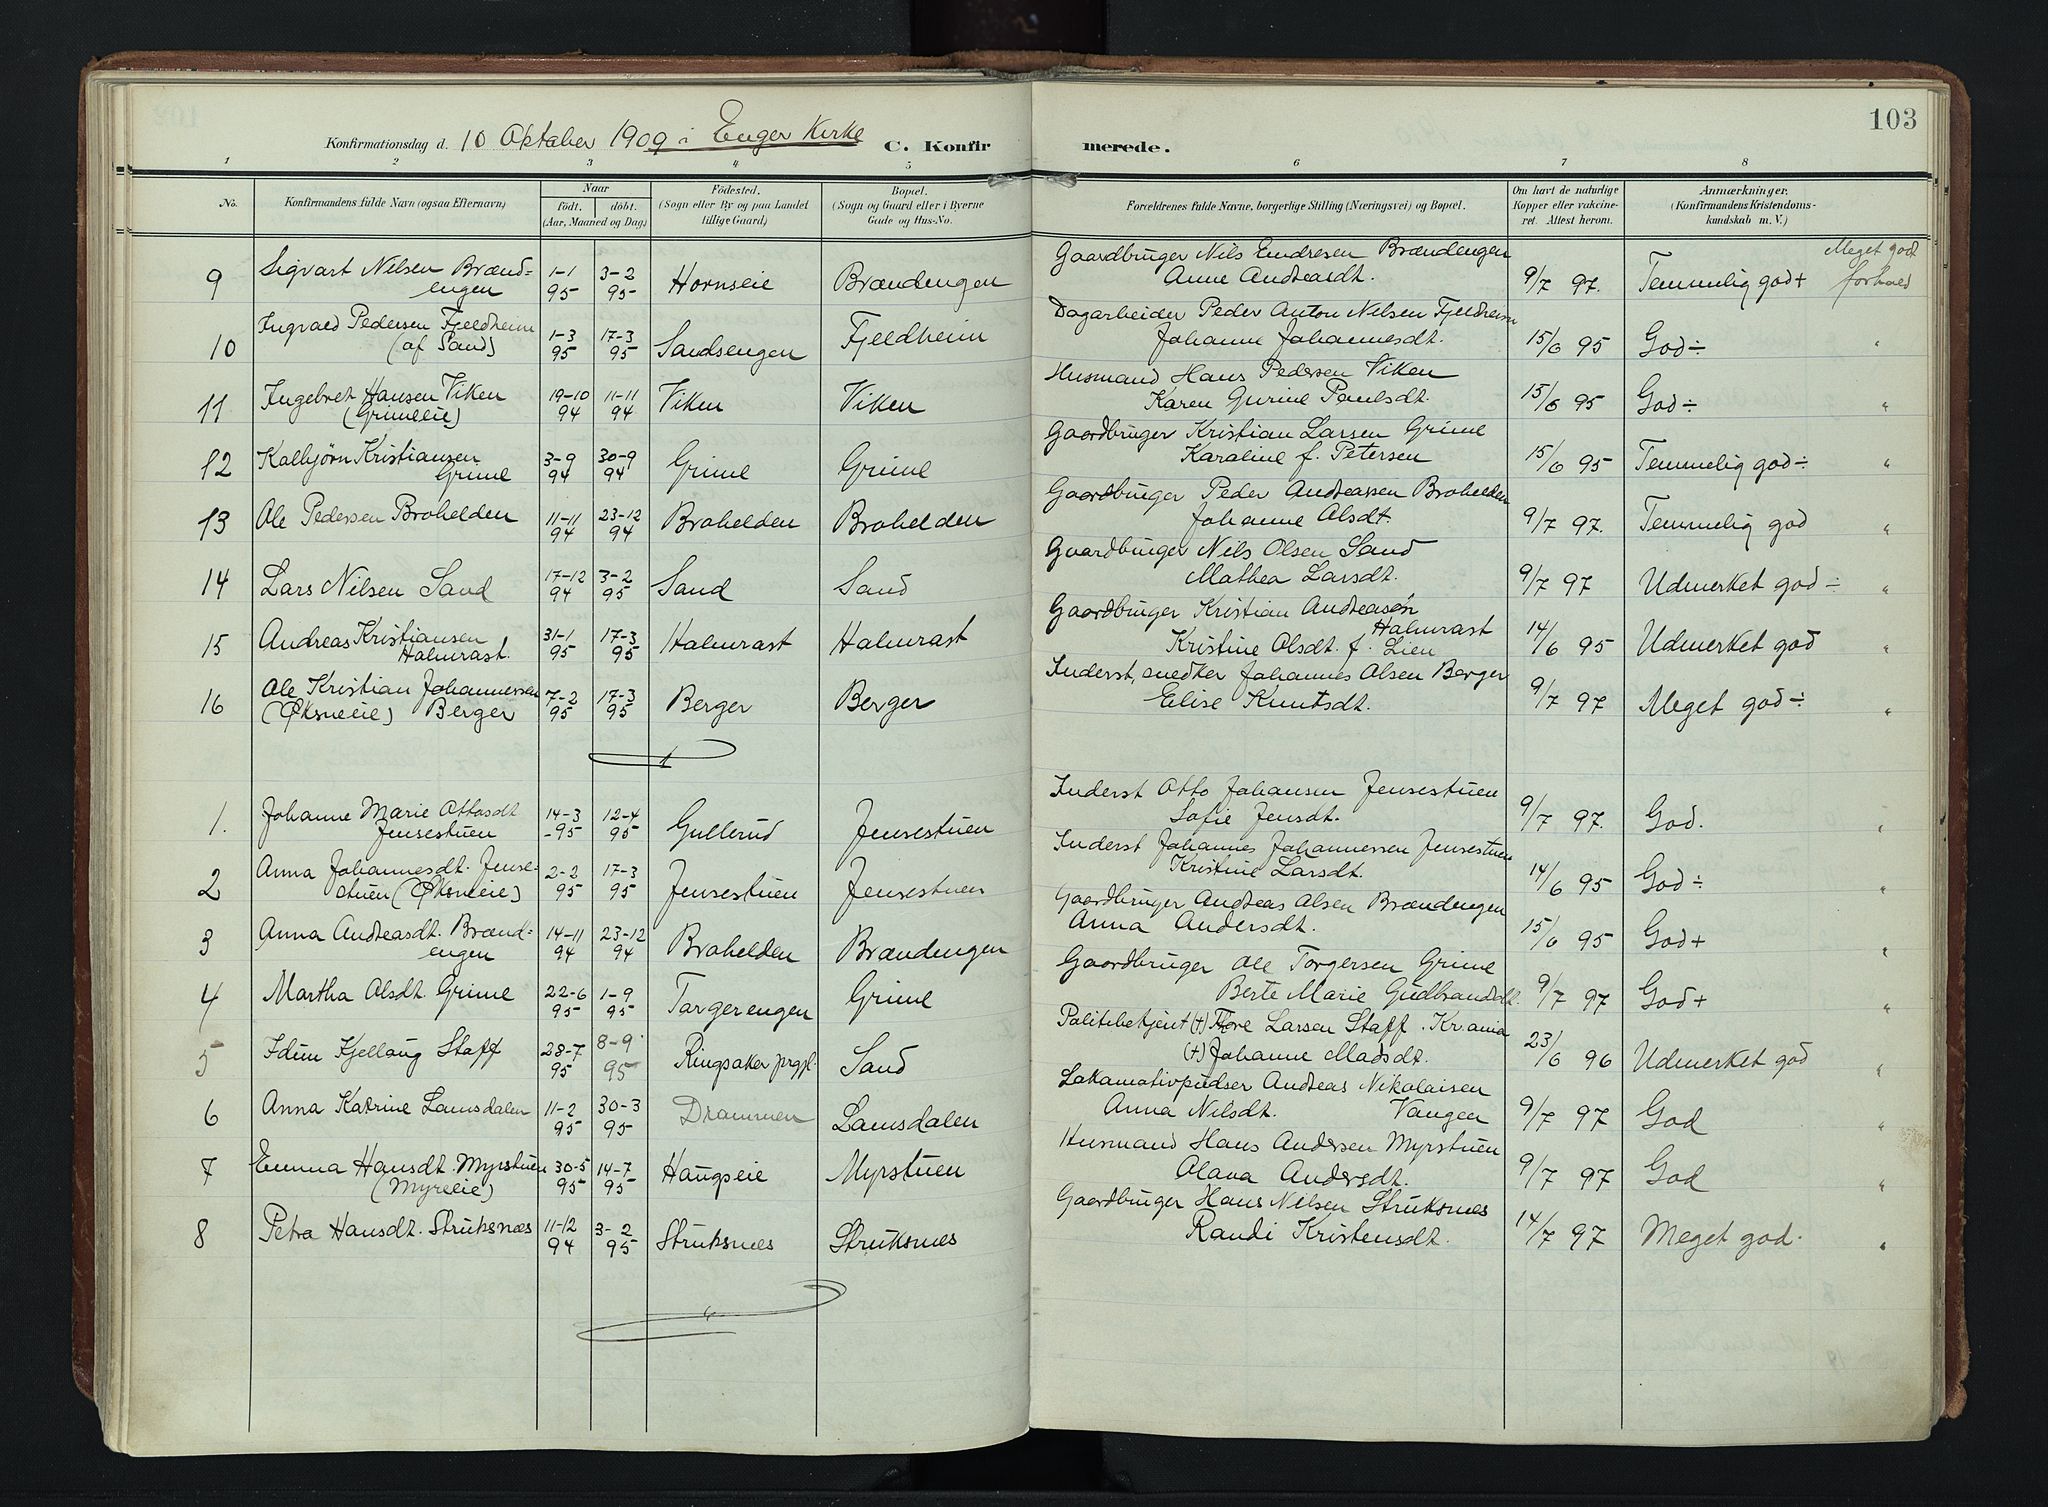 103
Konfirmationsdag d. 10 Oktober 1909 i Enger Kirke
C. Konfirmerede.
1 2 3 4 5 6 7 8
No.
Konfirmandens fulde Navn (ogsaa Efternavn)
Naar
födt. döbt.
(Aar, Maaned og Dag)
Födested.
(Sogn eller By og paa Landet
tillige Gaard)
Bopæl.
(Sogn og Gaard eller i Byerne
Gade og Hus-No.
Forældrenes fulde Navne, borgerlige Stilling (Næringsvei) og Bopæl.
Om havt de naturlige
Kopper eller vakcine-
ret. Attest herom.
Anmærkninger.
(Konfirmandens Kristendoms-
kundskab m. V.)
9 Sigvart Nilsen Brænd= 1-1 3-2 Gaardbruger Nils Endresen Brændengen Meget god
engen 95 95 Hornseie Brændengen Anne Andreasdt. 9/7 97. Temmelig god+ forhold
10 Ingvald Pedersen Fjeldheim 1-3 17-3 Dagarbeider Peder Anton Nilsen Fjeldheim
(af Sand) 95 95 Sandsengen Fjeldheim Johanne Johannesdt. 15/6 95 God÷ "
11 Ingebret Hansen Viken 19-10 11-11 Viken Viken Husmand Hans Pedersen Viken
(Grimeeie) 94 94 Karen Gurine Paulsdt. 15/6 95 God÷ "
12 Kolbjørn Kristiansen 3-9 30-9 Grime Grime Gaardbruger Kristian Larsen Grime
Grime 94 94 Karoline f. Petersen 15/6 95 Temmelig god÷ "
13 Ole Pedersen Brohelden 11-11 23-12 Brohelden Brohelden Gaardbruger Peder Andreassen Brohelden
94 94 Johanne Olsdt. 9/7 97. Temmelig god "
14 Lars Nilsen Sand 17-12 3-2 Sand Sand Gaardbruger Nils Olsen Sand
94 95 Mathea Larsdt. 9/7 97 Udmerket god÷ "
15 Andreas Kristiansen 31-1 17-3 Halmrast Halmrast Gaardbruger Kristian Andreasøn
Halmrast. 95 95 Halmrast
Kristine Olsdt. f. Lien 14/6 95 Udmerket god "
16 Ole Kristian Johannessen 7-2 17-3 Berger Berger Inderst, snedker Johannes Olsen Berger
(Øksneeie) Berger 95 95 Elise Knutsdt. 9/7 97 Meget god÷ "
1. Johanne Marie Ottosdt 14-3 12-4 Gullerud Jensestuen Inderst Otto Johansen Jensestuen
Jensestuen -95 95 Sofie Jensdt. 9/7 97. God. "
2 Anna Johannesdt. Jense- 2-2 17-3 Jensestuen Jensestuen Inderst Johannes Johannessen Jensestuen
stuen (Øksneeie) 95 95 Kristine Larsdt. 14/6 95 God÷ "
3 Anna Andreasdt. Brænd= 14-11 23-12 Brohelden Brændengen Gaardbruger Andreas Olsen Brændengen
engen 94 94 Anna Andersdt. 15/6 95 God+ "
4 Martha Olsdt. Grime 22-6 1-9 Torgerengen Grime Gaardbruger Ole Torgersen Grime
95 95 Berte Marie Gudbrandsdt. 9/7 97 God+ "
5 Idun Kjellaug Staff 28-7 8-9 Ringsaker prgjl. Sand Politibetjent (+) Tore Larsen Staff. Kr.ania
95 95 (+) Johanne Madsdt. 23/6 96 Udmerket god "
6 Anna Katrine Lamsdalen 11-2 30-3 Drammen Lamsdalen Lokomotivpudser Andreas Nikolaisen
95 95 Anna Nilsdt. Vangen 9/7 97 God "
7 Emma Hansdt. Myrstuen 30-5 14-7 Haugseie Myrstuen Husmand Hans Andersen Myrstuen
(Myreeie) 95 95 Olava Andersdt. 9/7 97 God "
8 Petra Hansdt. Struksnæs 11-12 3-2 Struksnæs Struksnæs Gaardbruger Hans Nilsen Struksnæs
94 95 Randi Kristensdt. 14/7 97 Meget god. "